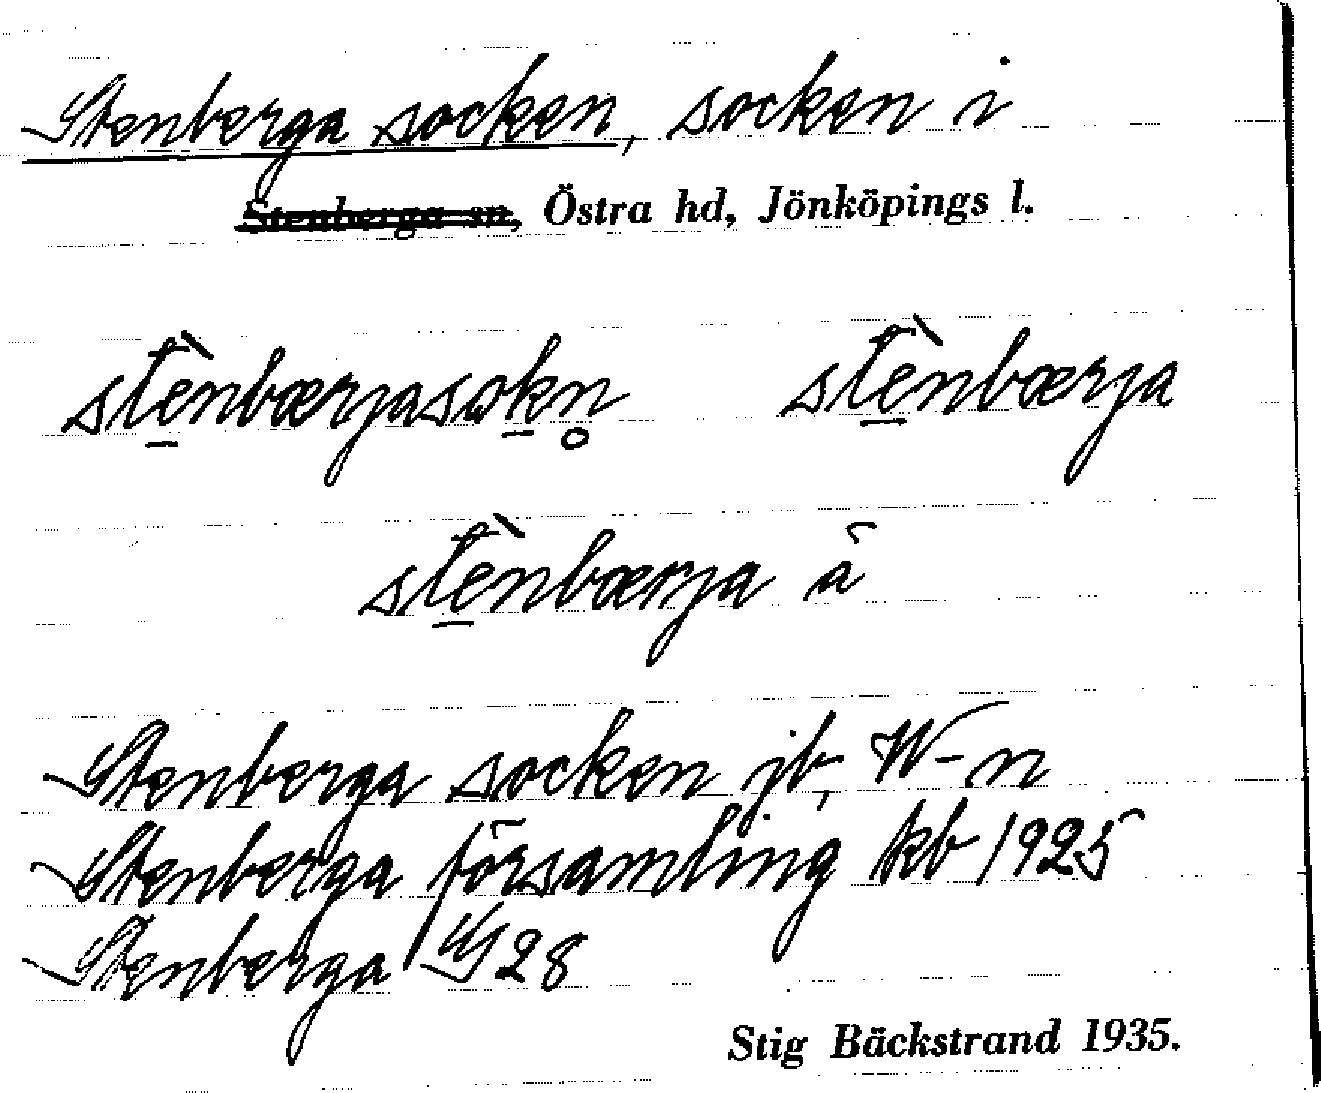 Stenberga socken, socken i
Stenberga sn, Östra hd, Jönköpings l.
stènbærjasokn̥ stènbærja
stènbærja â
Stenberga socken jb, W-n
Stenberga församling kb 1925
Stenberga 28
Stig Bäckstrand 1935.